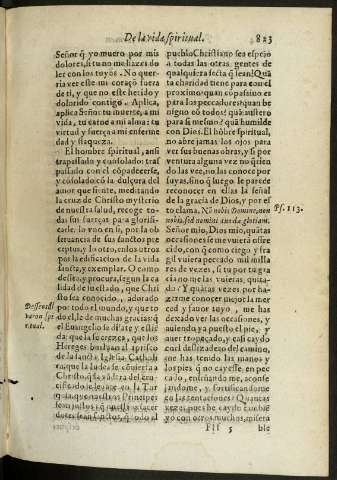 De la vida spiritual. 823
Señor q̃ yo muero por mis
dolores, si tu no me hazes do
ler con los tuyos. No quer-
ria ver este mi coraçõ fuera
de ti, y que no este herido y
dolorido contigo. Aplica,
aplica Señor tu muerte, a mi
vida, tu carne a mi alma: tu
virtud y fuerça a mi enferme
dad y flaqueza.
El hombre spiritual, assi
traspassado y consolado: tras
passado con el cõpadecerse,
y cõsolado cõ la dulçura del
amor que siente, meditando
la cruz de Christo mysterio
de nuestra salud, recoge to-
das sus fuerças para glorifi-
carle. Lo vno en si, por la ob
seruancia de sus sanctos pre
ceptos, y lo otro, en los otros
por la edificacion de la vida
sancta, y exemplar. O como
dessea, y procura, segun la ca
lidad de su estado, que Chri
sto sea conocido, adorado
por todo el mundo, y que to
do el, le de muchas gracias: q̃
el Euangelio se dilate y estiẽ
da: que la fe crezca, que los
Hereges bueluan al aprisco
de la sancta Iglesia Catholi
ca, que la Iudea se cõuierta a
pueblo Christiano sea espejo
a todas las otras gentes de
qualquiera secta q̃ sean! Quã
ta charidad tiene para con el
proximo: quan cõpassiuo es
para los peccadores: quan be
nigno cõ todos! quã austero
para si mesmo! quã humilde
con Dios. El hõbre spiritual,
no abre jamas los ojos para
ver sus buenas obras, y si por
ventura alguna vez no quiẽn
do las vee, no las conoce por
suyas, sino q̃ luego le parece
reconocer en ellas la señal
de la gracia de Dios, y por es
to clama, Nõ nobis Domine, non
nobis, sed nomini tuo da gloriam.
Señor mio, Dios mio, quãtas
occasiones se me vuiera offre
cido, con q̃ como ciego y fra
gil vuiera peccado mil milla
res de vezes, si tu por tu gra
cia no me las vuieras, quita-
do? Y quãtas vezes por ha-
zerme conocer mejor la mer
ced y fauor tuyo, me has
dexado ver las occasiones, y
auiendo ya puesto el pie, y
auer tropeçado, y casi caydo
en el deslizadero del camino,
me has tenido las manos y
los pies q̃ no cayesse en pec-
cado, enseñando me, aconse
jandome, y fortificandome
en las tentaciones! Quantas
vezes, pues he caydo tambiẽ
yo con otros muchos, misera
Ps. 113.
Fff 5 ble